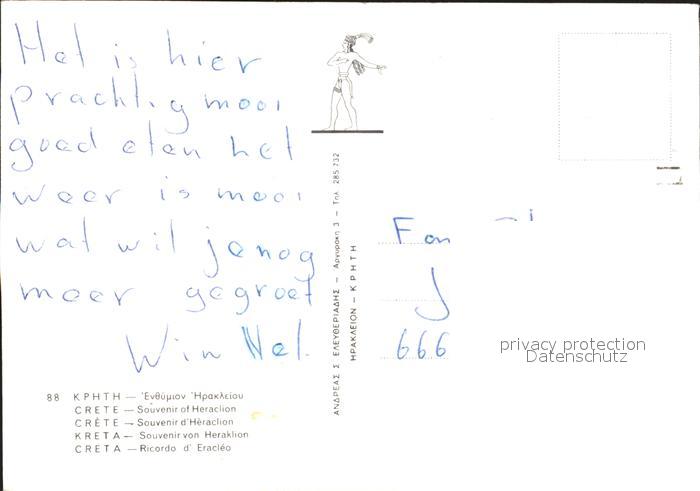 Het is hier
prachtig mooi
goed eten het
weer is mooi
wat wil je nog
meer gegroet
Win Nel.
88 ΚΡΗΤΗ — Ἐνθύμιον Ἡρακλείου
CRETE — Souvenir of Heraclion
CRÈTE — Souvenir d'Hèraclion
KRETA — Souvenir von Heraklion
CRETA — Ricordo d' Eracléo
ΑΝΔΡΕΑΣ Σ ΕΛΕΥΘΕΡΙΑΔΗΣ — Αργυρακη 3 — Τηλ 285 732
ΗΡΑΚΛΕΙΟΝ — ΚΡΗΤΗ
Fam
J
666
privacy protection
Datenschutz